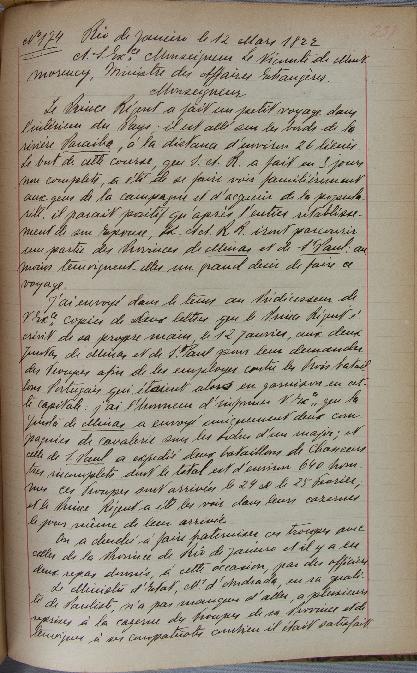 Nº 174 Rio de Janeiro le 12 Mars 1822
A S. Exce Monseigneur le Vicomte de Mont
morency, Ministre des Affaires Etrangères.
Monseigneur
Le Prince Régent a fait un petit voyage dans
l'intérieur du Pays; il est allé sur les bords de la
rivière Paraiba, à la distance d'environ 26 lieues
Le but de cette course, que S. A. R. a fait en 3 jours
non complets, a été de se faire voir familièrement
aux gens de la campagne et d'acquérir de la popula-
rité. il parait positif qu'après l'entier rétablisse-
ment de son Epouse, LL. A. R. R. iront parcourir
une partie des Provinces de Minas et de St Paul. au
moins témoignent-elles un grand désir de faire ce
voyage.
J'ai envoyé dans le tems au Prédécesseur de
V. Exce copies de deux lettres que le Prince Régent é-
crivit de sa propre main, le 12 Janvier, aux deux
Juntas de Minas et de St Paul pour leur demander
des troupes afin de les employer contre les trois batail
lons Portugais qui étaient alors en garnison en cet-
te capitale. j'ai l'honneur d'informer V. Exce que la
Junta de Minas a envoyé uniquement deux com-
pagnies de cavalerie sous les ordres d'un major; et
celle de S. Paul a expédié deux bataillons de chasseurs
très incomplets dont le total est d'environ 640 hom-
mes ces troupes sont arrivées le 24 et le 25 février,
et le Prince Régent a été les voir dans leurs casernes
le jour même de leur arrivée.
On a cherché à faire fraterniser ces troupes avec
celles de la Province de Rio de Janeiro et il y a eu
deux repas donnés, à cette occasion, par des officiers
Le Ministre d'Etat, Mr d'Andrada, en sa quali-
té de Pauliste, n'a pas manqué d'aller, à plusieurs
reprises à la caserne des troupes de sa Province et de
témoigner à ses compatriotes combien il était satisfait